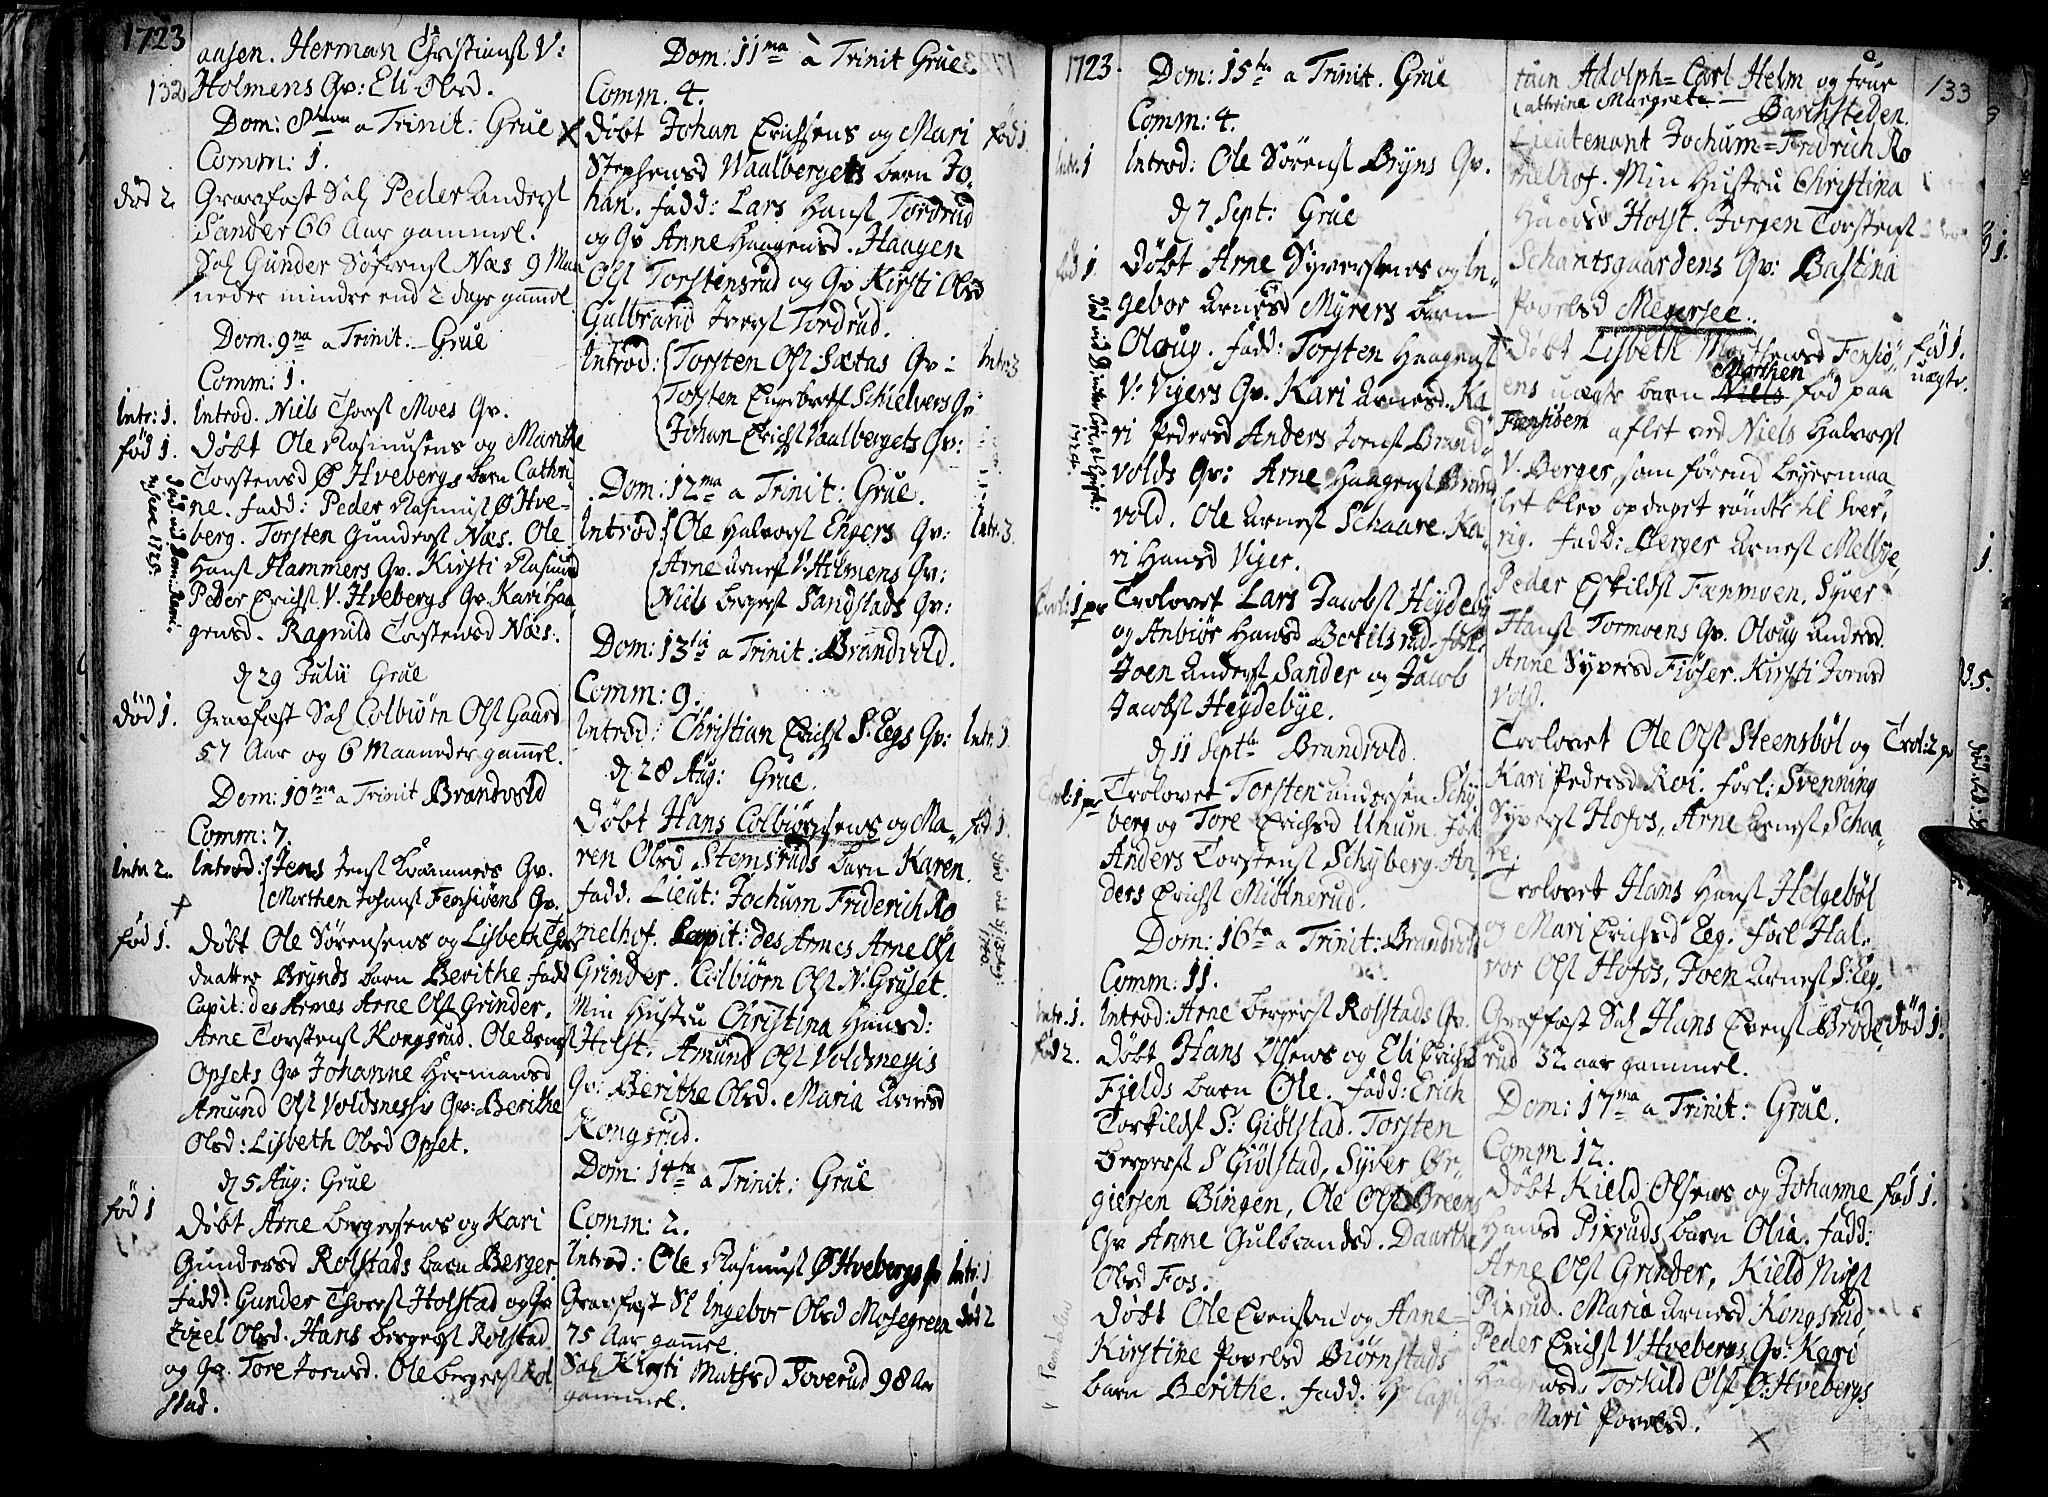 1723
132
aasen. Herman Christianst V:
Holmens Qv: Eli Olsd.
Dom: 8tava a Trinit. Grue
Comm: 1.
død 2.
Gravfæst Sal Peder Anderst
Sander 66 Aar gammel.
Sal Gunder Søfrenst Næs 9 Maa
neder mindre end 2 dage gammel
Dom: 9na a Trinit. Grue
Comm: 1.
Intr: 1.
Introd. Niels Thorst Moes Qv.
fød 1.
Døbt Ole Rasmusens og Marithe
Torstensd Ø Hvebergs barn Cathri
ne. fadd: Peder Rasmust Ø Hve-
berg. Torsten Gunderst Næs. Ole
Hanst Hammers Qv. Kirsti Rasmusd
Peder Erichst V. Hvebergs Qv. Kari Haa
gensd. Ragnild Torstensd Næs.
d 29 Julii Grue
død 1.
Gravfæst Sal Colbiørn Olst Gaard
57 Aar og 6 Maaneder gammel.
Dom: 10ma a Trinit Brandvold
Comm: 7.
Intr 2.
Introd: Jens Jenst Qv.
Morthen Johanst Fensiøens Qv.
fød 1.
Døbt Ole Sørensens og Lisbeth
daatter Brynds barn Berithe fadd
Capit: des Armes Arne Olst Grinder.
Arne Torstenst Kongsrud. Ole Arnest
Opsets Qv Johanne Hermansd
Amund Olst Voldsnessis Qv: Berithe
Olsd: Lisbeth Olsd Opset.
d 5 Aug: Grue
fød 1
Døbt Arne Bergersens og Kari
Gundersd Rolstads barn Berger.
fadd: Gunder Thorst Holstad og Qv
Zizel Olsd. Hans Bergerst Rolstad
og Qv. Tore Jonsd. Ole Bergerst Rol
stad.
Dom: 11ma à Trinit Grue.
Comm. 4.
Døbt Johan Erichsens og Mari
fød 1
Stephensd Waalbergets barn Jo-
han. fadd: Lars Hanst Tordrud
og Qv Anne Haagensd. Haagen
Olst Torstensrud og Qv Kirsti Olsd
Gulbrand Iverst Tordrud.
Introd: Torsten Olst Sætas Qv:
Intr: 3
Torsten Engebretst Schielvers Qv
Johan Erichst Vaalbergets Qv:
Dom: 12ma a Trinit: Grue.
Introd: Ole Halvorst Engers Qv:
Intr: 3.
Arne Arnest V: Holmens Qv:
Niels Bergerst Sandstads Qv:
Dom: 13tia a Trinit: Brandvold.
Comm: 9.
Introd: Christian Erichst S. Eegs Qv:
Intr: 1
d 28 Aug: Grue.
Døbt Hans Colbiørnsens og Ma-
fød 1.
ren Olsd Stemsruds barn Karen.
fadd. Lieut: Jochum Friderich Ro
melhof. Capit: des Armes Arne Olst
Grinder. Colbiørn Olst N. Gruset.
Min Hustru Christina Hansd:
Holst. Amund Olst Voldsnessis
Qv: Berithe Olsd. Maria Arnesd
Kongsrud.
Dom: 14ta a Trinit: Grue
Comm: 2.
Introd: Ole Rasmust Ø Hvebergs Qv
Intr: 1
Gravfæst Sl Ingebor Olsd Mosegreen
død 2
75 Aar gammel.
Sal Kirsti Mathsd Toverud 98 Aar
gammel.
1723.
Dom: 15ta a Trinit. Grue
Comm: 4.
Intr: 1
Introd: Ole Sørenst Bryns Qv.
d 7 Sept: Grue
fød 1
Døbt Arne Syversens og In-
gebor Arnesd Myrers barn
Oloug. fadd: Torsten Haagenst
V: Vigers Qv. Kari Arnesd. Ka
ri Pedersd Anders Jonst Brand
volds Qv: Arne Haagenst Brand
vold. Ole Arnest Schaare. Ka-
ri Hansd Viger.
Trol: 1 pr
Trolovet Lars Jacobst Heydeby
og Anbiør Hansd Bertilsrud. forl:
Joen Anderst Sander og Jacob
Jacobst Heydebye.
d 11 Septb Brandvold.
Trol: 1 pr
Trolovet Torsten Andersen Schy
berg og Tore Erichsd Unum. forl
Anders Torstenst Schyberg. An
ders Erichst Miølnerud.
Dom: 16ta a Trinit: Brandvold
Comm: 11.
Intr: 1.
Introd: Arne Bergerst Rolstads Qv.
fød 2.
Døbt Hans Olsens og Eli Erichsd
Fields barn Ole. fadd: Erich
Torkildst S: Giølstad. Torsten
Bergerst S Giølstad, Syver Ør-
giersen Bingen, Ole Olst Breens
Qv Anne Gulbrandsd. Daarthe
Olsd Fos.
Døbt Ole Evensen og Anne
Kirstine Povelsd Biørnstads
barn Berithe. fadd. Hr Capi
133
tain Adolph Carl Helm og frue
Cathrina Margreta Barchsteden.
Lieutenant Jochum Fridrich Ro
melhof. Min Hustru Christina
Hansd Holst. Jørgen Torstenst
Schantsgaardens Qv: Bastina
Povelsd Meyersee.
Døbt Lisbeth Morthensd Fensiø-
fød 1.
uægte.
ens uægte barn Morthen fød paa
Fensiøen aflet ved Niels Halvorst
V. Berger, som førend Leyermaa
let blev opdaget rømte til Sver-
rig. fadd: Berger Arnest Melbye,
Peder Eskildst Tænmoen. Syver
Hanst Tormoens Qv. Oloug Andersd.
Anne Syversd Fiøser. Kirsti Jonsd
Vold.
Trolovet Ole Olst Steensbøl og
Trol: 2 pr
Kari Pedersd Roi. forl: Svenning
Syverst Hofos, Arne Arnest Schaa-
re.
Trolovet Hans Hanst Helgebøl
og Mari Erichsd Eeg. forl Hal-
vor Olst Hofos, Joen Arnest S: Eeg.
Gravfæst Sal Hans Evenst Brøde
død 1.
rud 32 aar gammel.
Dom: 17ma a Trinit: Grue.
Comm 12.
Døbt Kield Olsens og Johanne
fød 1.
Hansd Pixruds barn Olia. fadd:
Arne Olst Grinder, Kield Nielst
Pixrud. Maria Arnesd Kongsrud
Peder Erichst V. Hvebergs Qv: Kari
Haagensd. Torkild Olst Ø: Hvebergs
Qv: Mari Povelsd.